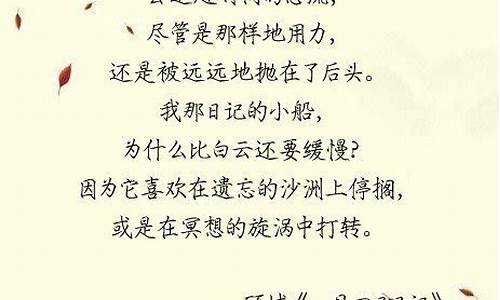 尽管是那样地用力，
还是被远远地抛在了后头。
我那日记的小船，
为什么比白云还要缓慢?
因为它喜欢在遗忘的沙洲上停搁，
或是在冥想的旋涡中打转。